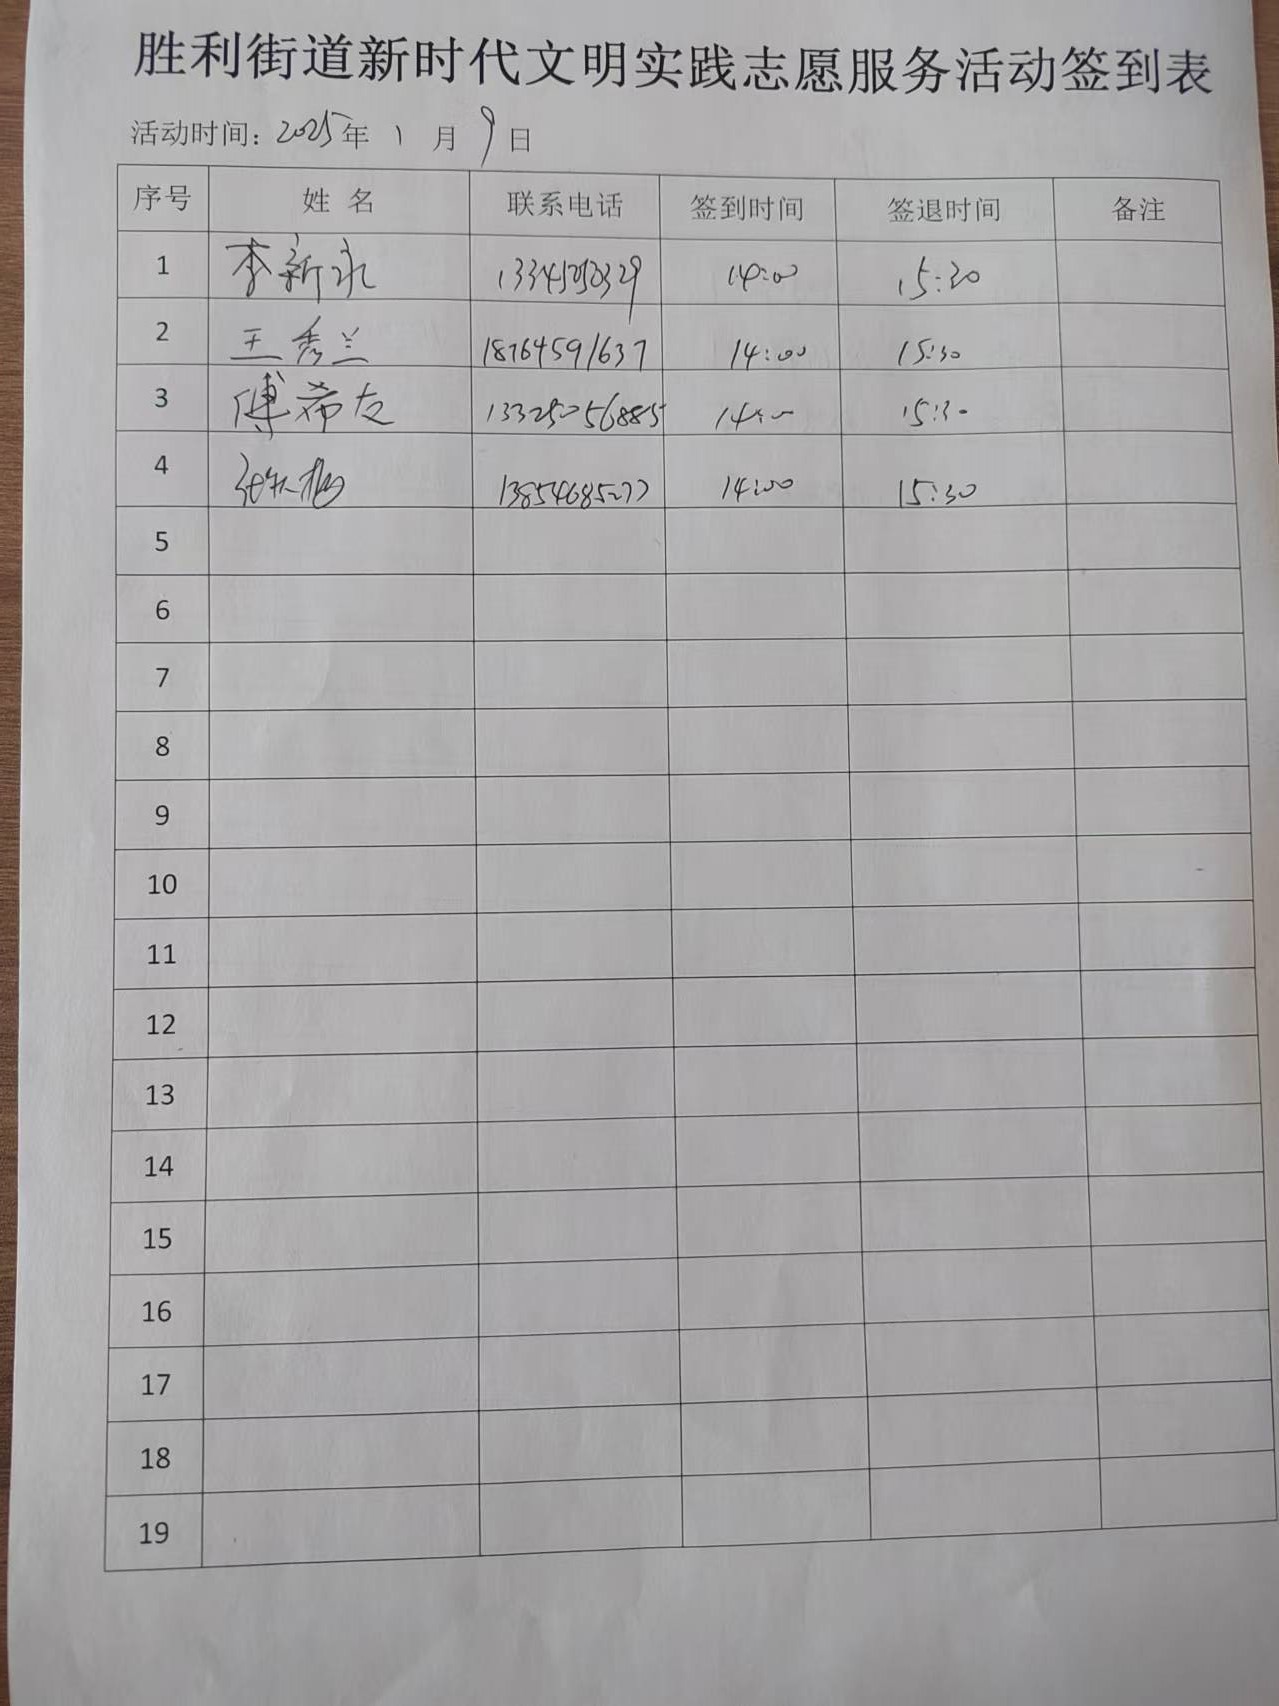 胜利街道新时代文明实践志愿服务活动签到表
活动时间：2025年 1 月 9 日
序号 姓 名 联系电话 签到时间 签退时间 备注
1 李新永 14:00 15:30
2 王秀兰 18764591637 14:00 15:30
3 傅希友 13325056885 14:00 15:30
4 14:00 15:30
5
6
7
8
9
10
11
12
13
14
15
16
17
18
19